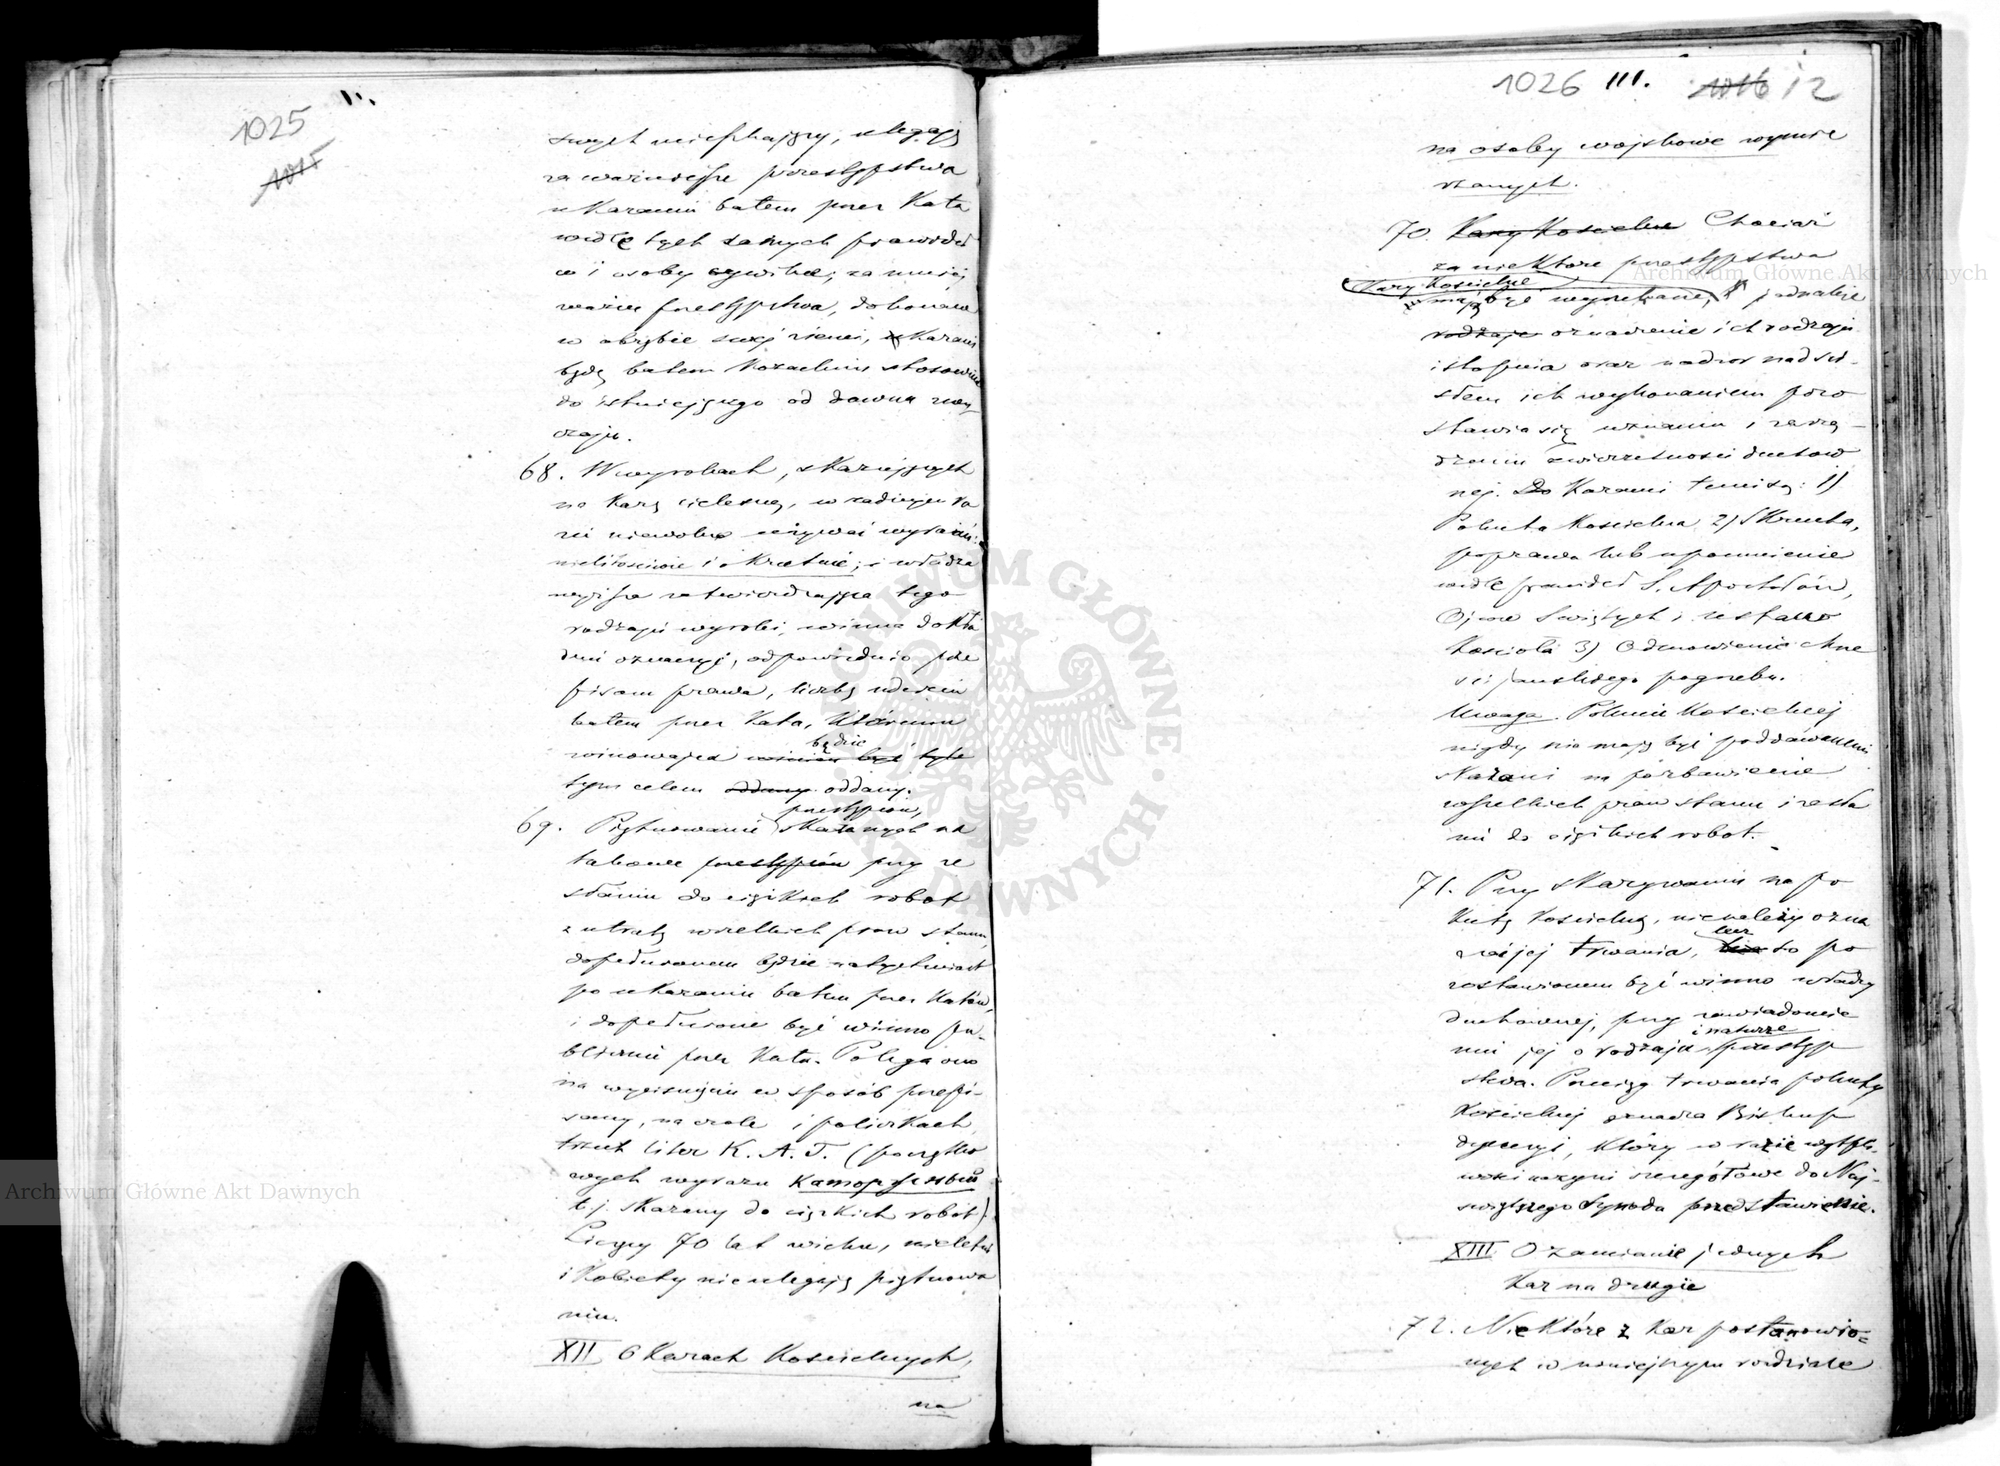 1025
1015
swych mieszkający, ulegają
za ważniejsze przestępstwa
ukaraniu batem przez Kata
wedle tych samych prawideł
co i osoby cywilne; za mniej
ważne przestępstwa, dokonane
w obrębie swej ziemi, karani
będą batem Kozackim stosownie
do istniejącego od dawna zwy
czaju.
68. W wyrokach, skazujących
na karę cielesną, w żadnym ra
zie niewolno używać wyrażeń:
nielitościwie i okrutnie; i władza
wyższa zatwierdzająca tego
rodzaju wyroki, winna dokła
dnie oznaczyć, odpowiednio prze
pisom prawa, liczbę uderzeń
batem przez Kata, któremu
będzie
winowajca winien być
tym celem oddany oddany.
przestępców,
69. Piętnowanie skazanych na
przestępców przy ze
słaniu do ciężkich robót
z utratą wszelkich praw stanu,
dopełnionem będzie natychmiast
po ukaraniu batem przez Katów,
i dopełnione być winno pu-
blicznie przez Kata. Polega ono
na wyciśnięciu w sposób przepi-
sany, na czole i policzkach
trzech liter K. A. T. (początko
wych wyrazu
t.j. skazany do ciężkich robót).
Liczący 70 lat wieku, nieletni
i kobiety nieulegają piętnowa
niu.
XII O Karach Kościelnych,
na
1026 III. 1016 12
na osoby wojskowe wymie
rzanych.
70. Kary Kościelne Chociaż
za niektóre przestępstwa
Kary Kościelne
mają być wyrzekane, jednakże
rodzaje oznaczenie ich rodzaju
i stopnia oraz nadzór nad ści-
słem ich wykonaniem pozo
stawia się uznaniu i zarzą-
dzeniu zwierzchności duchow
nej. Do Karami temi są: 1)
Pokuta Kościelna 2) Skrucha,
poprawa lub upomnienie
wedle prawideł S. Apostołów,
Ojców Świętych i ustaw
Kościoła 3) Odmówienie chrze
ścijańskiego pogrzebu.
Uwaga. Pokucie Kościelnej
nigdy nie mają być poddawanemi
skazani na pozbawienie
wszelkich praw stanu i zesła
nie do ciężkich robót.
71. Przy skazywaniu na po
kutę Kościelną, nienależy ozna
lecz
czać jej trwania, to po
zostawionem być winno władzy
duchownej, przy zawiadomie
i naturze
niu jej o rodzaju przestęp
stwa. Przeciąg trwania pokuty
Kościelnej oznacza Biskup
dyecezyi, który w razie wątpli-
wości uczyni szczegółowe do Naj-
świętszego Synodu przedstawienie.
XIII O zamianie jednych
Kar na drugie
72. Niektóre z kar postanowio-
nych w niniejszym rozdziale
Archiwum Główne Akt Dawnych
Archiwum Główne Akt Dawnych
ARCHIWUM GŁÓWNE AKT DAWNYCH